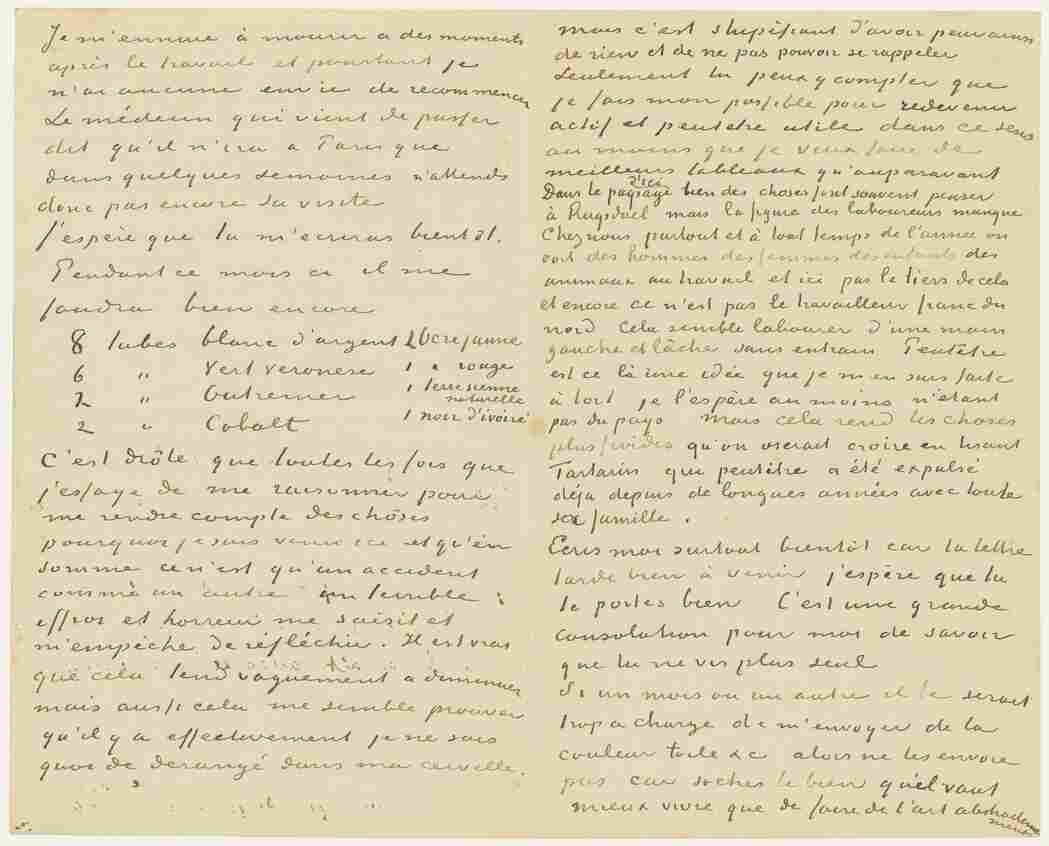 Je m'ennuie à mourir a des moments
après le travail et pourtant je
n'ai aucune envie de recommencer
Le médecin qui vient de passer
dit qu'il n'ira a Paris que
dans quelques semaines n'attends
donc pas encore sa visite
J'espère que tu m'ecriras bientôt.
Pendant ce mois ci il me
faudra bien encore
8 tubes blanc d'argent 1 Ocre jaune
6 " Vert veronese 1 " rouge
2 " Outremer 1 terre sienne naturelle
2 " Cobalt 1 noir d'ivoire
C'est drôle que toutes les fois que
j'essaye de me raisonner pour
me rendre compte des chôses
pourquoi je suis venu ici et qu'en
somme ce n'est qu'un accident
comme un autre un terrible
effroi et horreur me saisit et
m'empêche de réfléchir. Il est vrai
que cela tend vaguement a diminuer
mais aussi cela me semble prouver
qu'il y a effectivement je ne sais
quoi de derangé dans ma cervelle.
mais c'est stupéfiant d'avoir peur ainsi
de rien et de ne pas pouvoir se rappeler
Seulement tu peux y compter que
je fais mon possible pour redevenir
actif et peutetre utile dans ce sens
au moins que je veux faire de
meilleurs tableaux qu'auparavant
Dans le paysage d'ici bien des choses font souvent penser
à Ruysdael mais la figure des laboureurs manque
Chez nous partout et à tout temps de l'année on
voit des hommes des femmes des enfants des
animaux au travail et ici pas le tiers de cela
et encore ce n'est pas le travailleur franc du
nord Cela semble labourer d'une main
gauche et lâche sans entrain Peutêtre
est ce là une idée que je m'en suis faite
à tort je l'espère au moins n'étant
pas du pays Mais cela rend les choses
plus froides qu'on oserait croire en lisant
Tartarin qui peutêtre a été expulsé
déja depuis de longues années avec toute
sa famille.
Ecris moi surtout bientôt car ta lettre
tarde bien à venir j'espère que tu
te portes bien C'est une grande
consolation pour moi de savoir
que tu ne vis plus seul
Si un mois ou un autre il te serait
trop a charge de m'envoyer de la
couleur toile &c alors ne les envoie
pas car saches le bien qu'il vaut
mieux vivre que de faire de l'art abstraitement